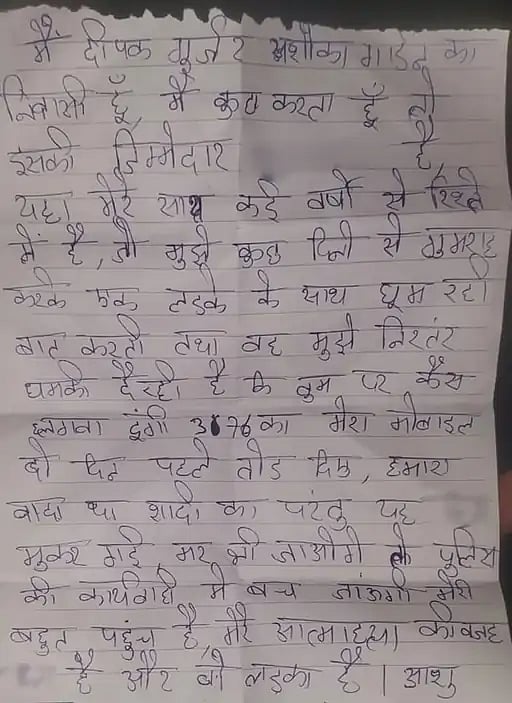 मैं दीपक गुर्जर अशोका गार्डन का
निवासी हूँ, मैं कुछ करता हूँ तो
इसकी जिम्मेदार है,
यहा मेरे साथ कई वर्षो से रिश्ते
में है, जो मुझे कुछ दिनो से गुमराह
करके एक लडके के साथ घूम रही
बात करती तथा वह मुझे निरतंर
धमकी दे रही है कि तुम पर कैस
लगवा दूंगी 376 का मेरा मोबाइल
दो दिन पहले तोड दिए, हमारा
वादा था शादी का परंतु यह
मुकर गई, मर भी जाओगे तो पुलिस
की कार्यवाही मे बच जाऊंगी मेरी
बहुत पहुंच है, मेरे आत्माहत्या की वजह
है और वो लडका है | आशु